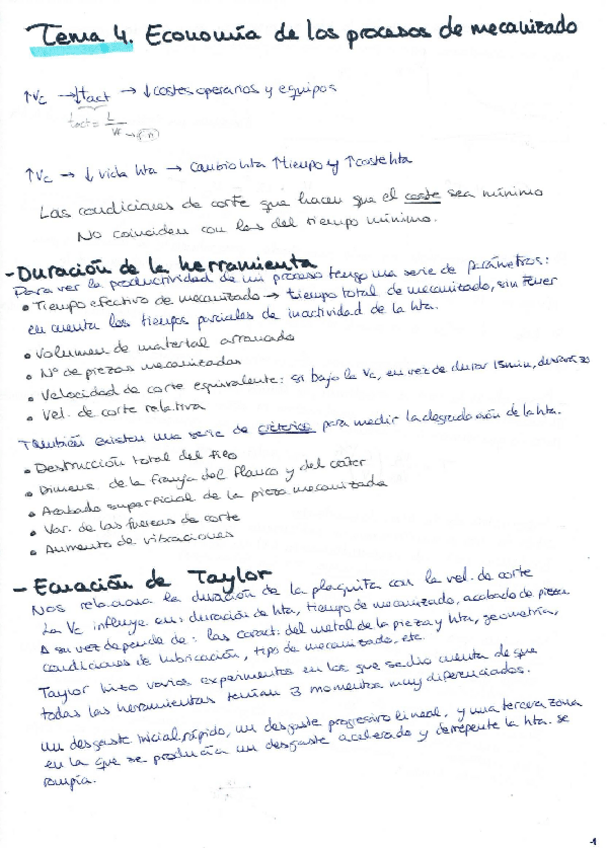 Tema 4. Economía de los procesos de mecanizado
↑Vc → ↓tact → ↓costes operarios y equipos
tact = L/Vf → f·n
↑Vc → ↓ vida hta → cambio hta ↑tiempo y ↑coste hta
Las condiciones de corte que hacen que el coste sea mínimo
No coinciden con las del tiempo mínimo.
- Duración de la herramienta
Para ver la productividad de mi proceso tengo una serie de parámetros:
• Tiempo efectivo de mecanizado → tiempo total de mecanizado, sin tener
en cuenta los tiempos parciales de inactividad de la hta.
• Volumen de material arrancado
• Nº de piezas mecanizadas
• Velocidad de corte equivalente: si bajo la Vc, en vez de durar 15min, durará 30
• Vel. de corte relativa
También existen una serie de criterios para medir la degradación de la hta.
• Destrucción total del filo
• Dimens. de la franja del flanco y del cráter
• Acabado superficial de la pieza mecanizada
• Var. de las fuerzas de corte
• Aumento de vibraciones
- Ecuación de Taylor
Nos relaciona la duración de la plaquita con la vel. de corte
La Vc influye en: duración de hta, tiempo de mecanizado, acabado de pieza.
A su vez depende de: las caract. del metal de la pieza y hta, geometría,
condiciones de lubricación, tipo de mecanizado, etc.
Taylor hizo varios experimentos en los que se dio cuenta de que
todas las herramientas tenían 3 momentos muy diferenciados.
Un desgaste inicial rápido, un desgaste progresivo lineal, y una tercera zona
en la que se producía un desgaste acelerado y derrepente la hta. se
rompía.
1